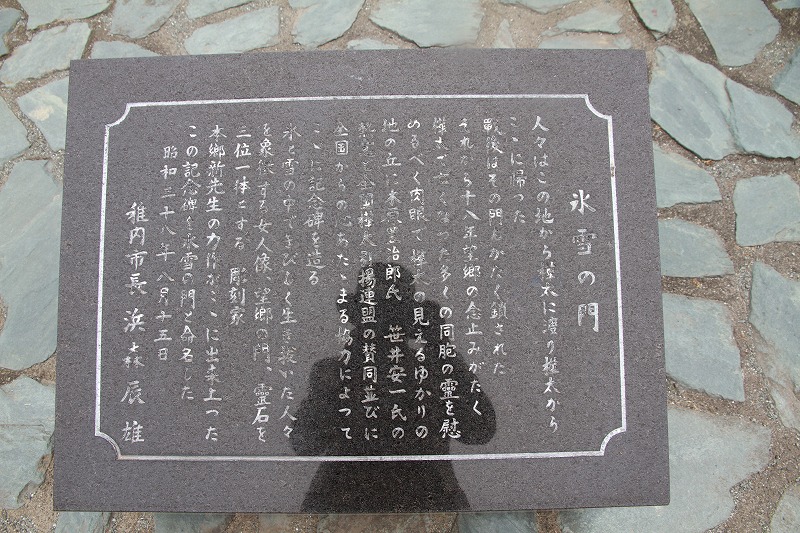 氷雪の門
人々はこの地から樺太に渡り樺太から
ここに帰った
戦後はその門はかたく鎖された
それから十八年望郷の念止みがたく
樺太で亡くなった多くの同胞の霊を慰
めるべく肉眼で樺太の見えるゆかりの
地の丘に 笹井安一氏の
全国樺太引揚連盟の賛同並びに
全国からの心あたゝまる協力によつて
ここに記念碑を造る
氷と雪の中できびしく生き抜いた人々
を象徴する女人像、望郷の門、霊石を
三位一体とする 彫刻家
本郷新先生の力作がここに出来上つた
この記念碑を氷雪の門と命名した
昭和三十八年八月十五日
稚内市長 浜森辰雄